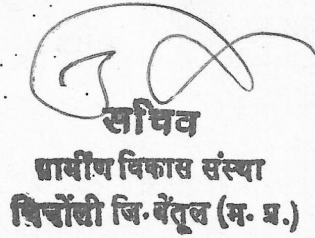 सचिव
ग्रामीण विकास संस्था
चिचोली जि. बेंतूल (म. प्र.)